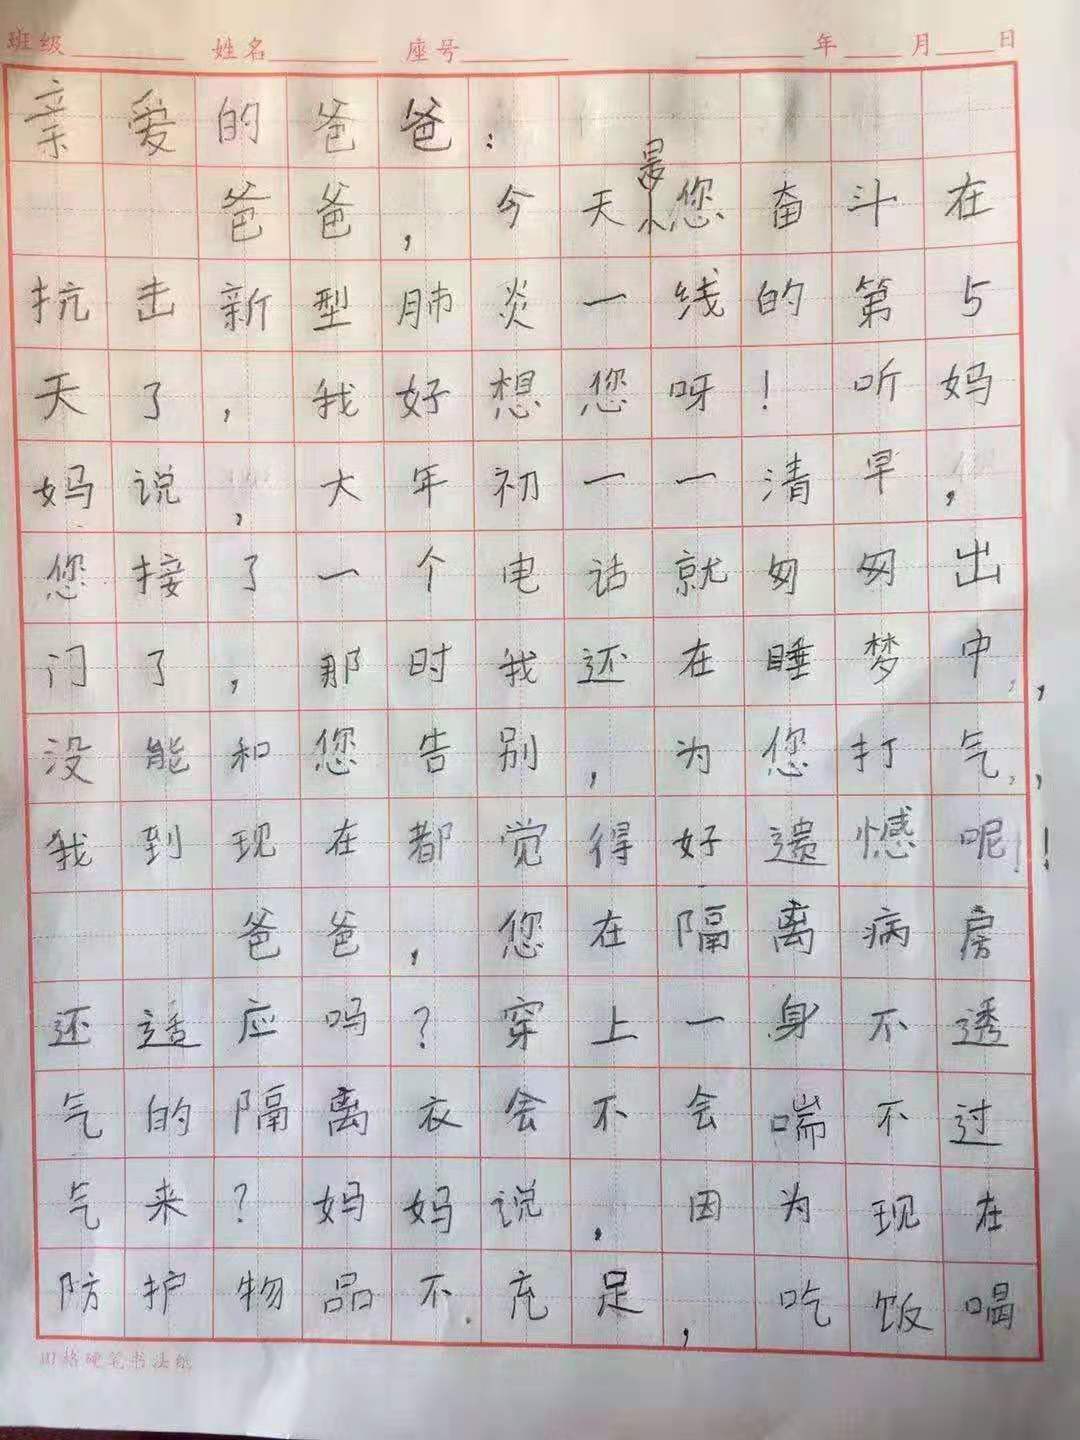 班级 姓名 座号 年 月 日
亲爱的爸爸：
爸爸，今天是您奋斗在
抗击新型肺炎一线的第5
天了，我好想您呀！听妈
妈说，大年初一一清早，
您接了一个电话就匆匆出
门了，那时我还在睡梦中，
没能和您告别，为您打气，
我到现在都觉得好遗憾呢！
爸爸，您在隔离病房
还适应吗？穿上一身不透
气的隔离衣会不会喘不过
气来？妈妈说，因为现在
防护物品不充足，吃饭喝
田格硬笔书法纸